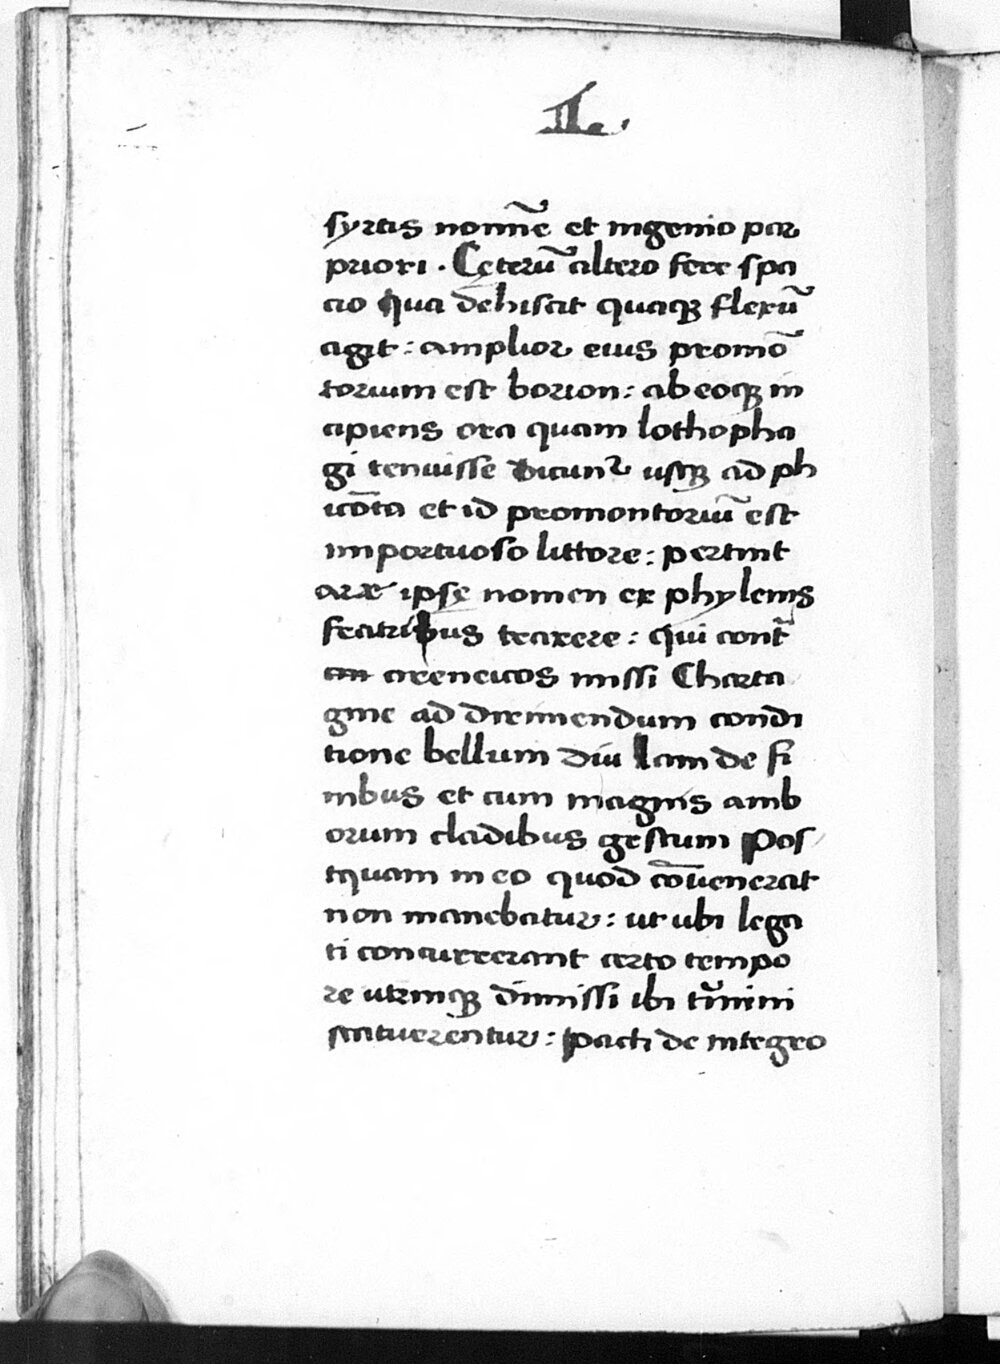 Ii.
syrtis nomīe et ingenio par
priori . Ceterū altero fere spa
cio qua dehiscit quaqꝫ flexū
agit : amplior eius promō
torium est borion : ab eoqꝫ in
cipiens ora quam lothopha
gi tenuisse dicunᷣ usqꝫ ad ph
icōta et id promontoriū est
importuoso littore : pertint
aræ ipse nomen ex phylenis
fratribus traxere : qui cont̃
cirencicos missi Charta
gine ad dirimendum condi
tione bellum diu Iam de fi
nibus et cum magnis amb
orum cladibus gestum Pos
tquam in eo quod cōuenerat
non manebatur : ut ubi lega
ti concurrerant certo tempo
re utrinqꝫ dimissi ibi t̃mini
statuerentur : pacti de integro